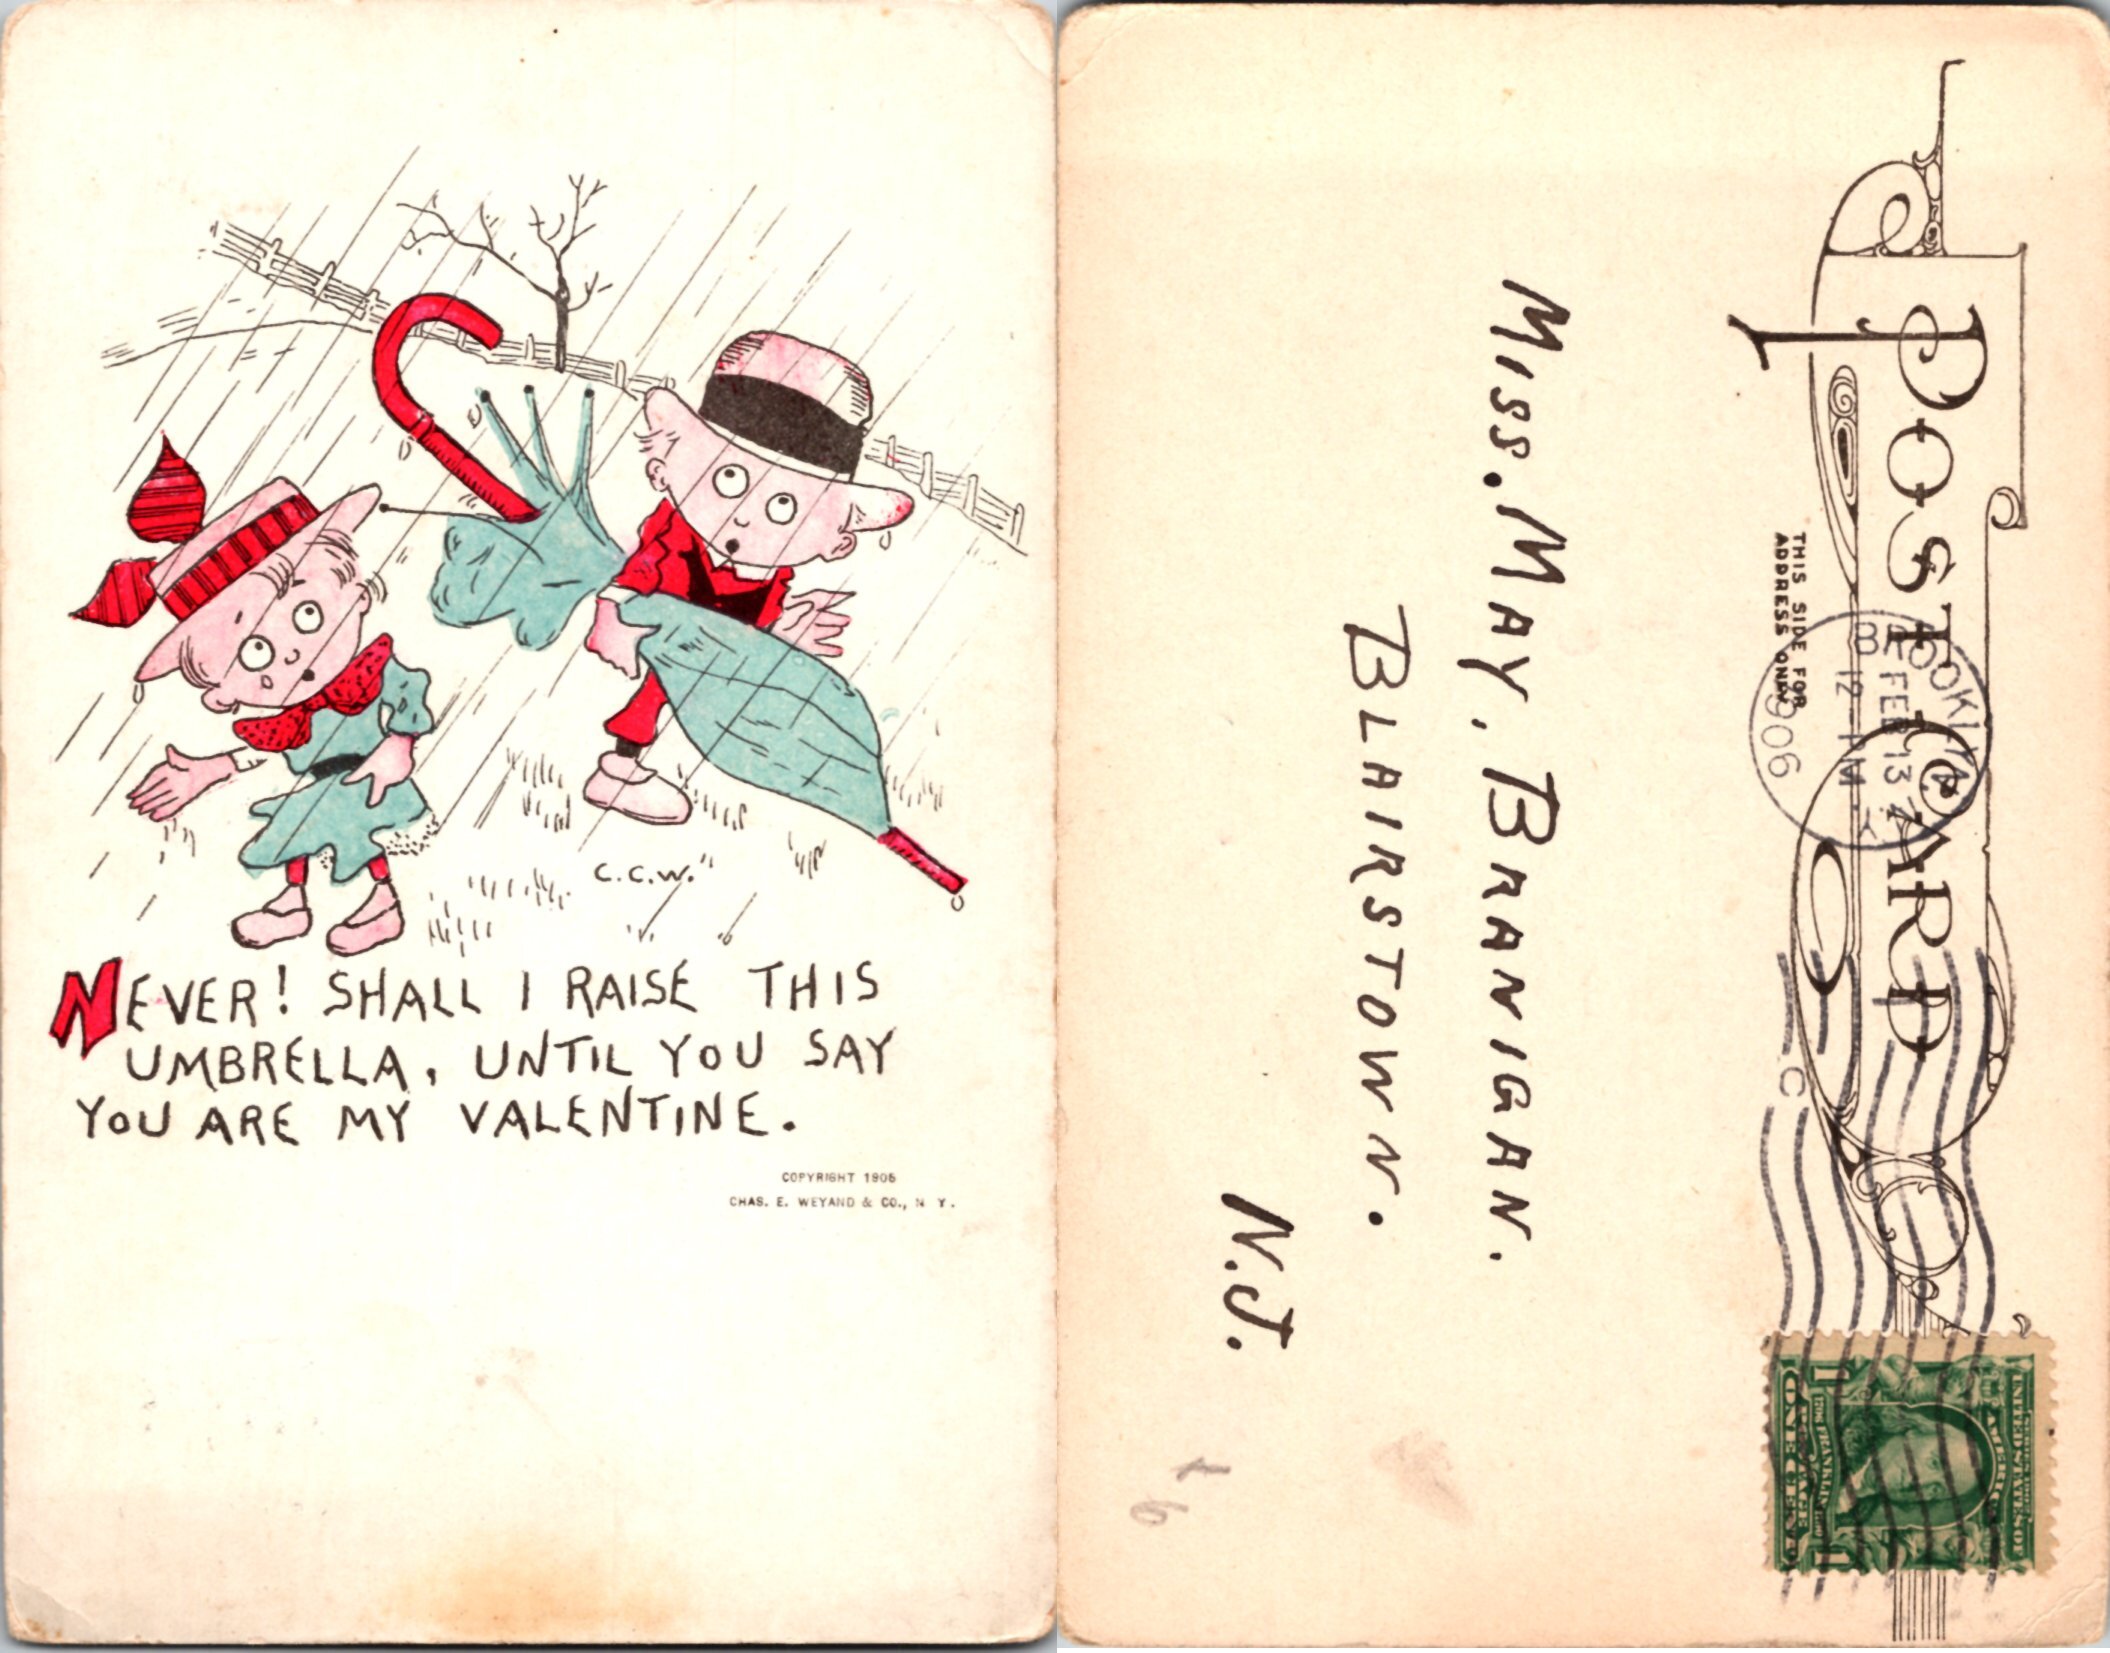 C.C.W.
NEVER! SHALL I RAISE THIS
UMBRELLA, UNTIL YOU SAY
YOU ARE MY VALENTINE.
COPYRIGHT 1905
CHAS. E. WEYAND & CO., N Y.
POST CARD
THIS SIDE FOR
ADDRESS ONLY
BROOKLYN, N.Y.
FEB 13
12 M
1906
C
UNITED STATES OF AMERICA
FRANKLIN
ONE CENT
1 1
MISS. MAY. BRANIGAN.
BLAIRSTOWN.
N.J.